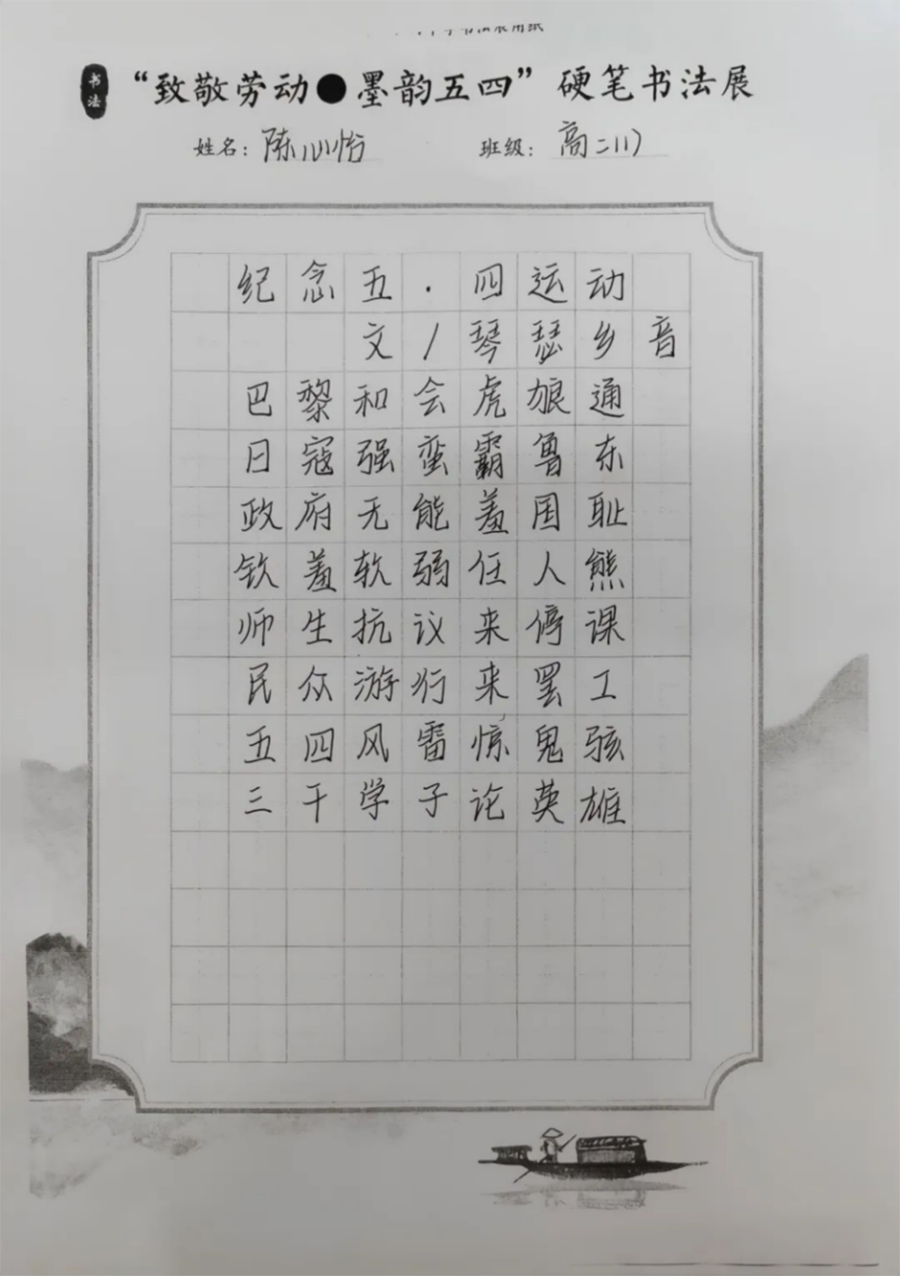 书法
“致敬劳动●墨韵五四”硬笔书法展
姓名：陈心怡 班级：高二(1)
纪念五·四运动
文/琴瑟乡音
巴黎和会虎狼通
日寇强蛮霸鲁东
政府无能羞国耻
钦羞软弱任人熊
师生抗议来停课
民众游行来罢工
五四风雷惊鬼骇
三千学子论英雄